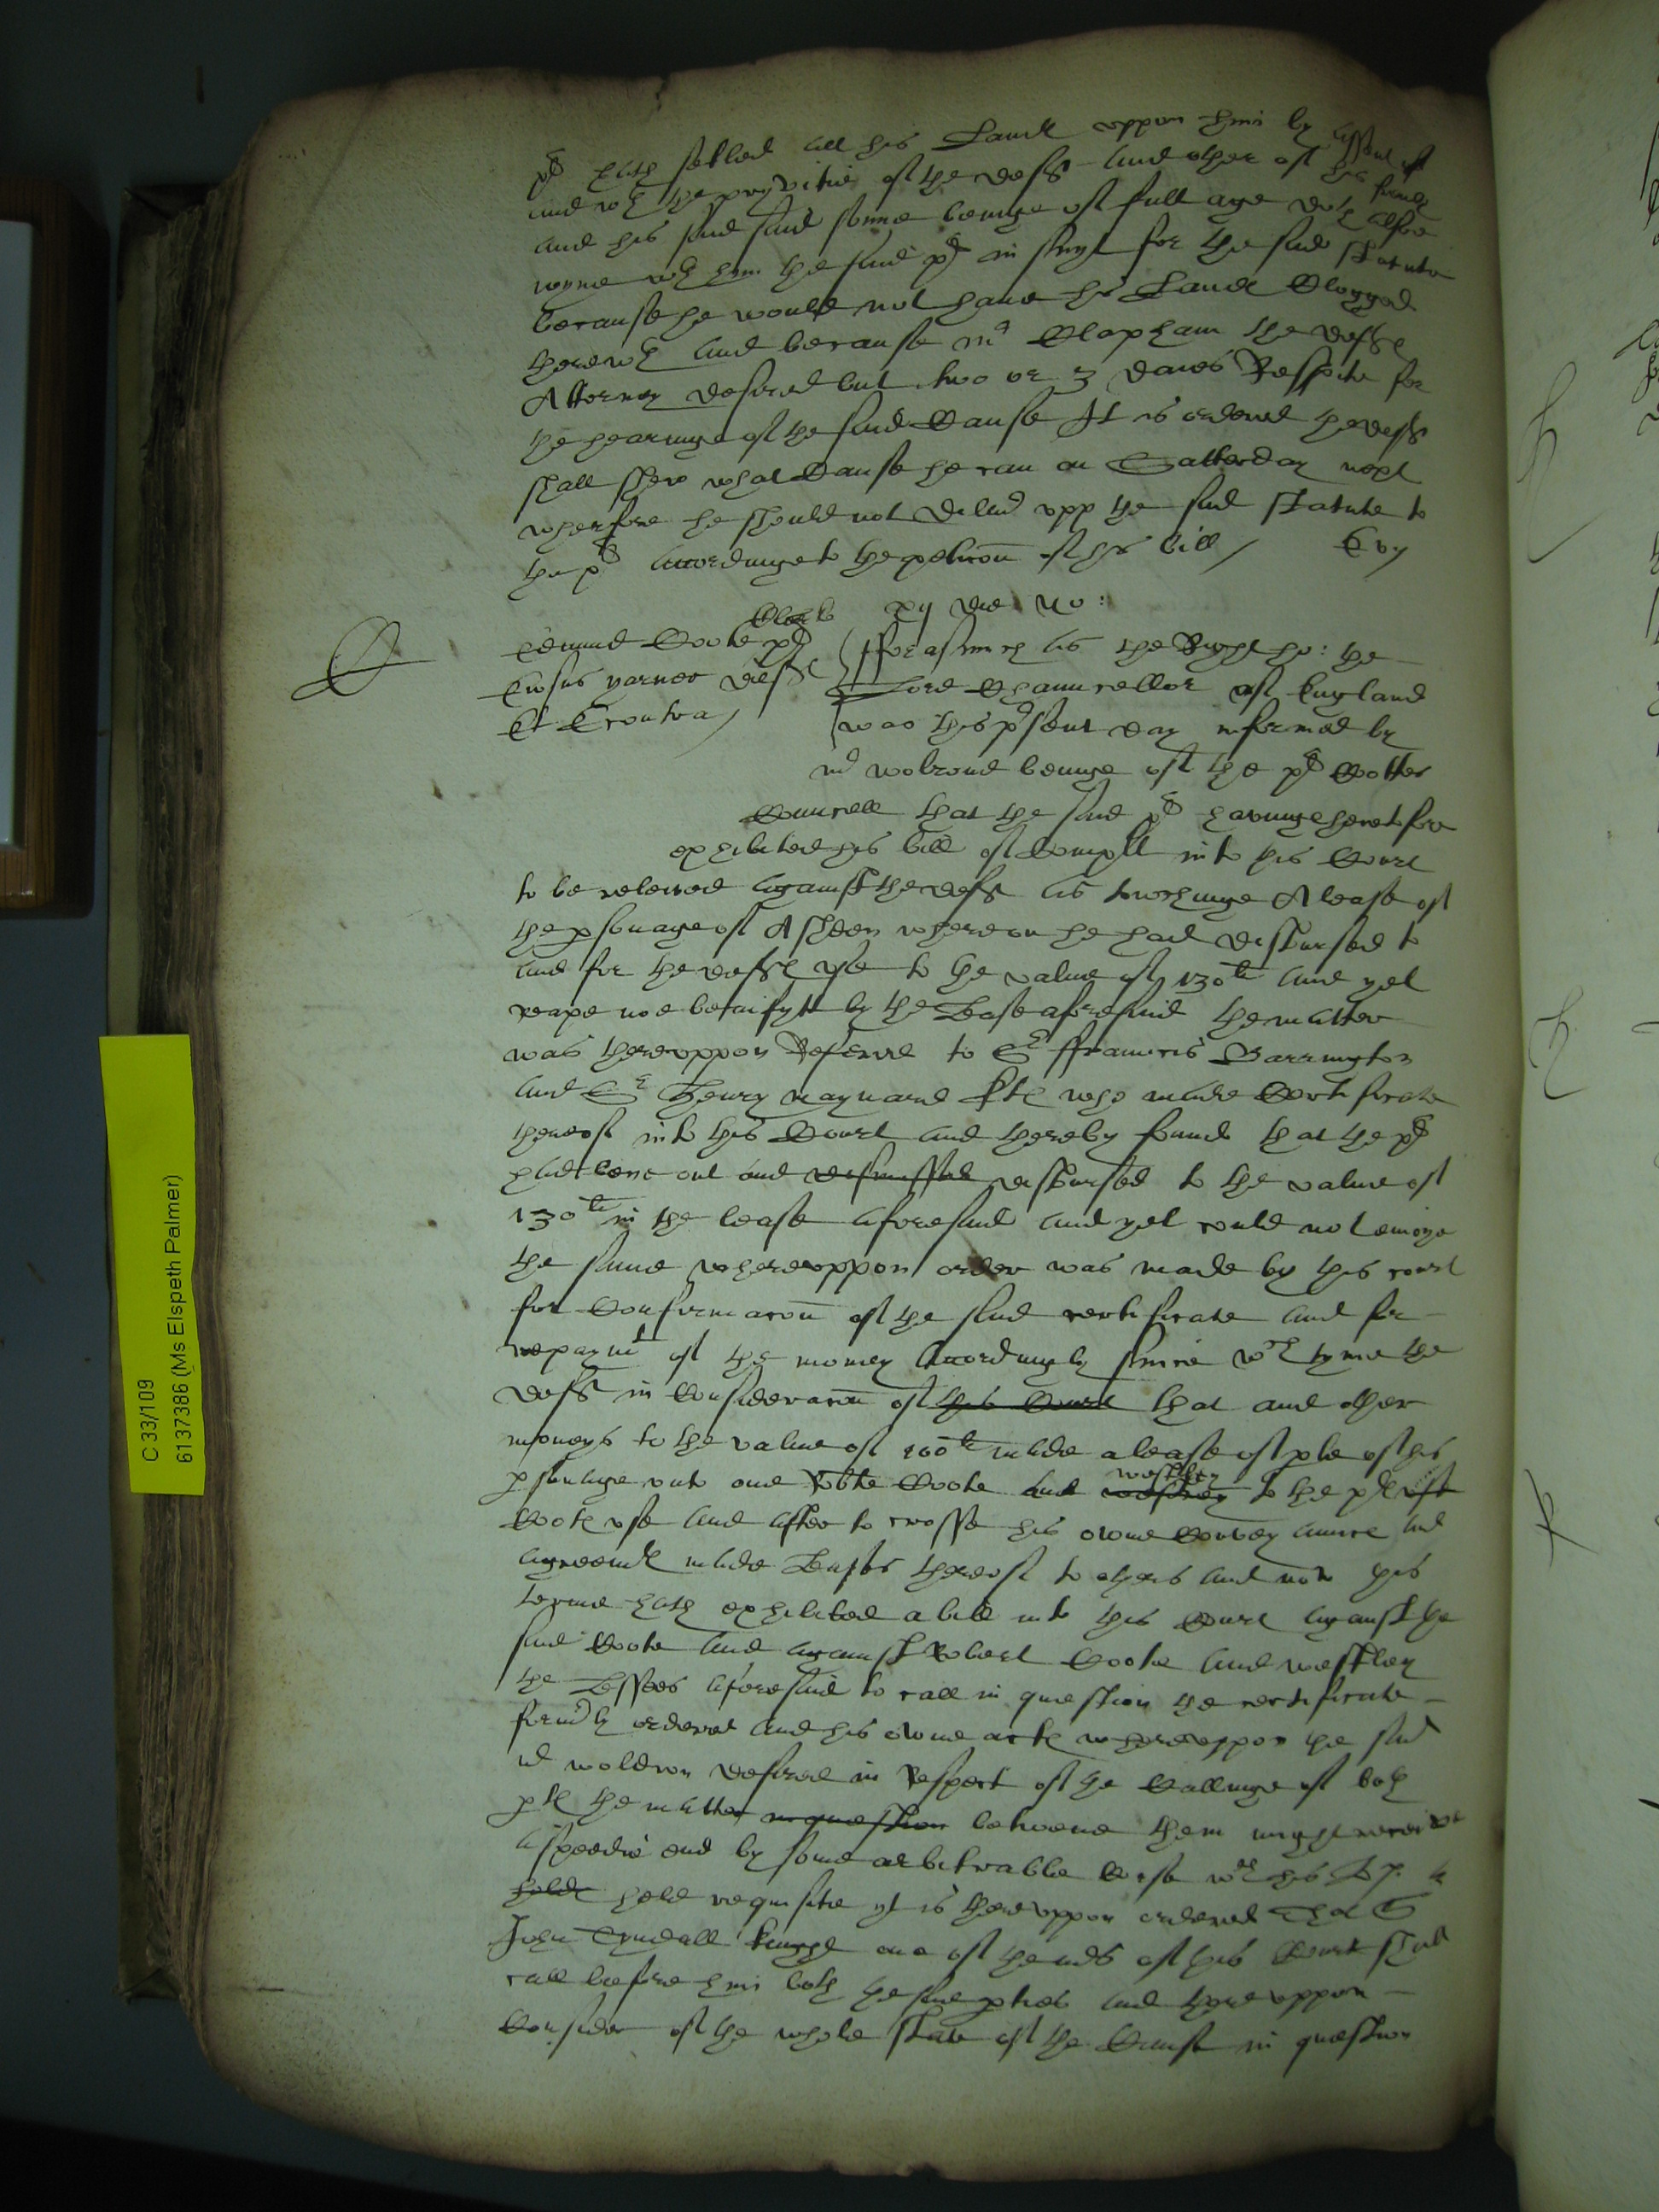 pl hath setled all his Lands uppon him by assent of
and wth the pryvitie of the deft and other of his frends
and his said said sonne beinge of full age doth also
joyne wth him the said pl in suyt for the said statute
because he would not have his Lands Clogged
therewth and because mr Clapham the defts
Attorney desired but two or 3 daies Respite for
the hearinge of the said Cause It is ordered the deft
shall shew what Cause he can on Satterday next
wherfore he should not deliver upp the said statute to
the pl accordinge to the peticon of his bill /
die no:
Edmund Coote pl
deft
Et Econtra /
fforasmuch as the Right ho: the
Lord Chauncellor of England
was this psent day informed by
mr Wolrond beinge of the pl Cootes
Councell that the said pl havinge heretofore
exhibited his bill of Complt into this Court
to be releived against the deft as towchinge A lease of
the psonage of Ashdon whereon he had disbursed to
and for the defts use to the value of 130li and yet
reape noe benifytt by the Lease aforesaid the matter
was thereuppon Referred to Sr ffrauncis Barrington
and Sr Henry Maynard kts who made Certificate
thereof into this Court and thereby found that the pl
had lent out and dismissed disbursed to the value of
130li in the lease aforesaid and yet could not enioye
the same whereuppon order was made by this court
for Confirmacon of the said certificate and for
repaymt of the money accordingly since wch tyme the
deft in Consideracon of this Court that and other
moneys to the value of 100li made a lease of pte of his
psonage unto one Robte Coote and westley to the pl
Cootes use and after to crosse his owne Conveyaunce and
agreemt made Leases thereof to others and now this
terme hath exhibited a bill into this Court against the
said Coote and against Robert Coote and westley
the Lessees aforesaid to call in question the certificate
formrly ordered and his owne acts whereuppon the said
mr woldron desired in Respect of the Callinge of both
pts the matter in question betweene them might receive
a speedie end by some arbitrable Corse wch his Lp
holds held requisite yt is thereuppon ordered That Sr
John Tyndall knight one of the mrs of this Court shall
call before him both the said pties and thereuppon
Consider of the whole state of the Cause in question
C 33/109
6137386 (Ms Elspeth Palmer)